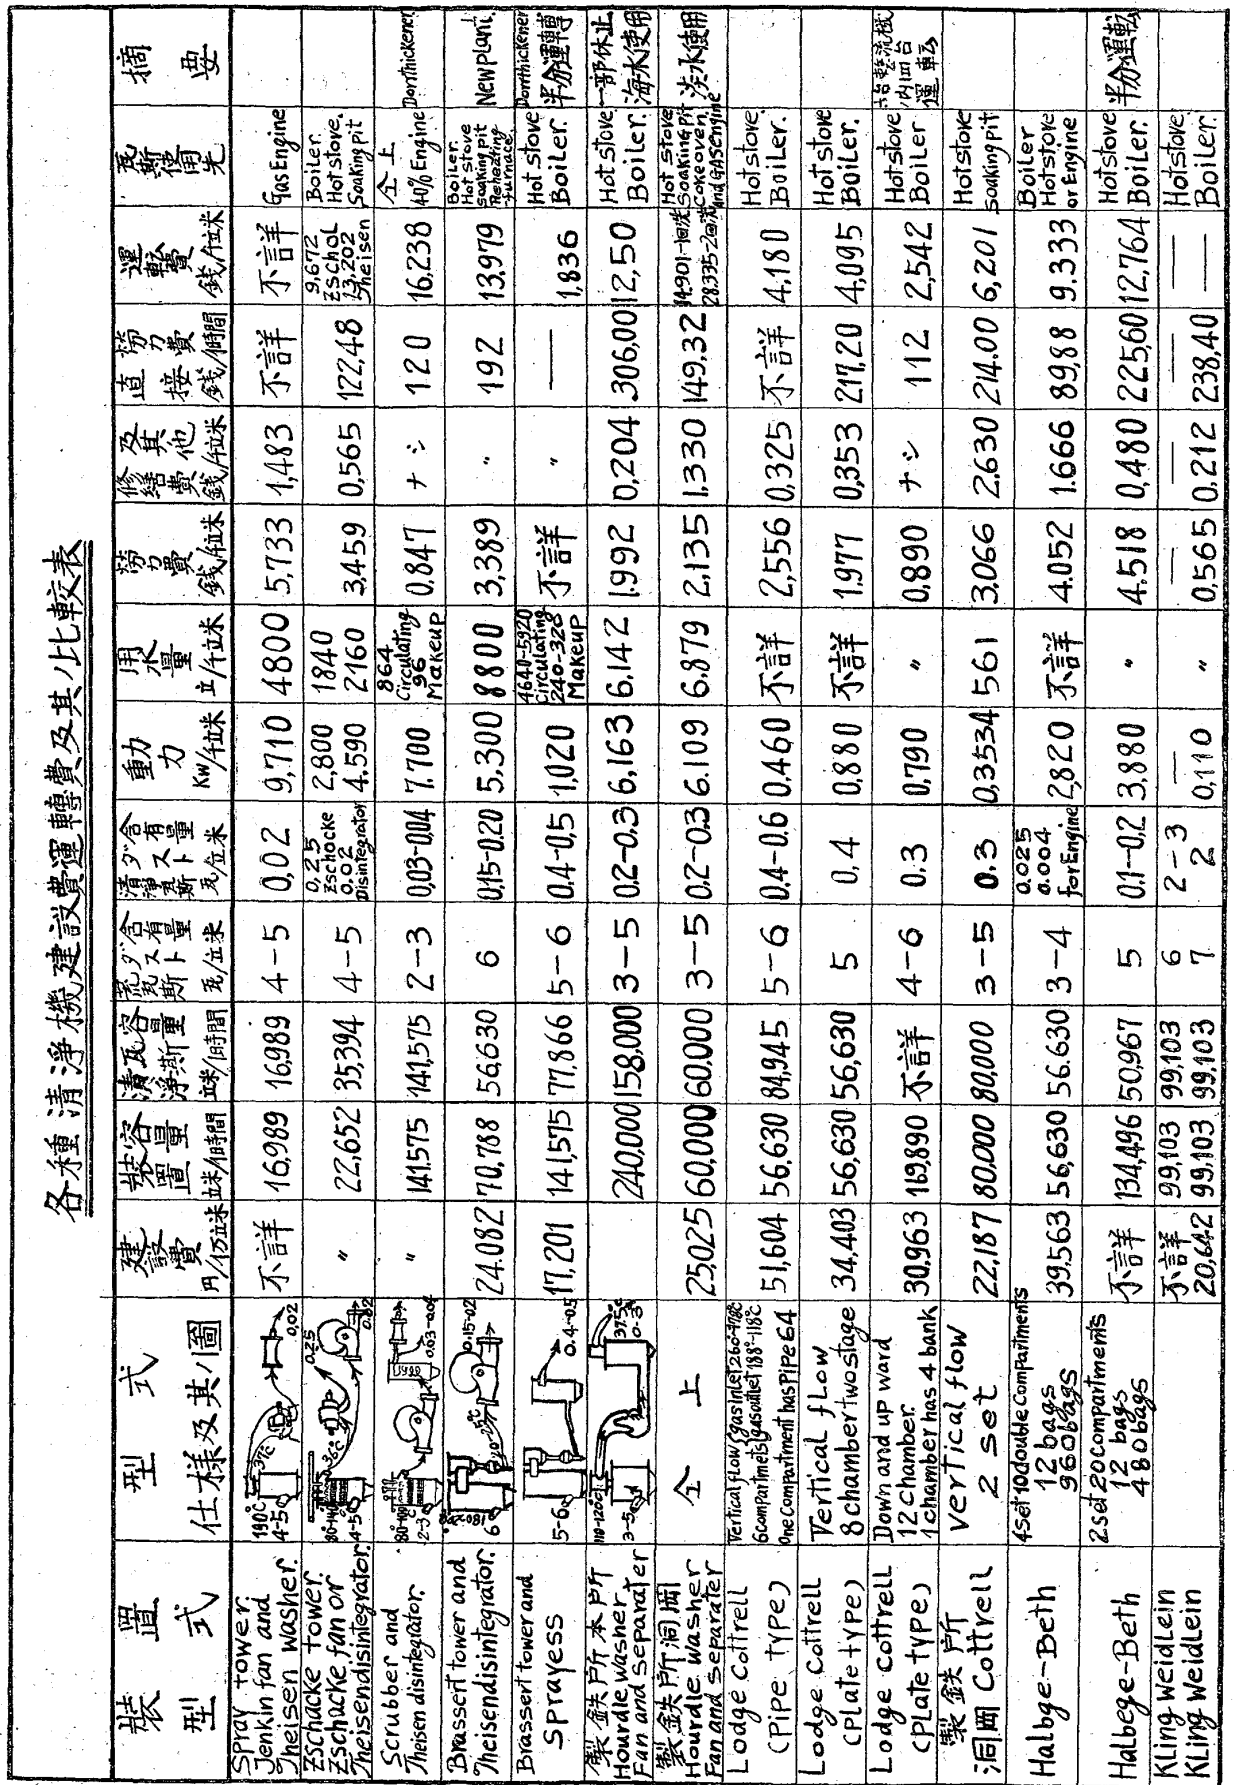 各種清淨機建設費運轉費及其ノ比較表
裝置型式
型式
仕様及其ノ圖
建設費
円/仂立米
裝置容量
立米/1時間
清淨瓦斯容量
立米/1時間
荒瓦斯ダスト含有量
瓦/立米
清淨瓦斯ダスト含有量
瓦/立米
動力
KW/千立米
用水量
立/千立米
勞力費
錢/千立米
修繕費及其他
錢/千立米
直接勞力費
錢/1時間
運転費
錢/千立米
瓦斯使用先
摘要
Spray tower.
Jenkin fan and
Theisen washer.
190°C
37°C
4-5
0.02
不詳
16,989
16,989
4-5
0,02
9,710
4800
5,733
1,483
不詳
不詳
Gas Engine
Zschacke tower.
Zschacke fan or
Theisen disintegrator.
36°C
4-5
0.25
0.02
〃
22,652
35,394
4-5
0,25
Zschocke
0.02
Disintegrator
2,800
4.590
1840
2160
3.459
0.565
122,48
9,672
Zschol
13,202
Theisen
Boiler.
Hot stove.
Soaking pit
Scrubber and
Theisen disintegrator.
80-100°C
2-3
0.03-0.04
〃
141,575
141,575
2-3
0,03-0,04
7.700
864
Circulating
96
Makeup
0.847
ナシ
120
16,238
仝上
40% Engine
Dorrthickener
Brassert tower and
Theisendisintegrator.
6
0.15-0.2
24.082
70,788
56,630
6
0,15-0,20
5,300
8800
3,389
〃
192
13,979
Boiler.
Hot stove
soaking pit
Reheating
furnace.
New plant.
Brassert tower and
Sprayess
5-6
0.4-0.5
17,201
141,575
77,866
5-6
0.4-0,5
1,020
4640-5920
Circulating
240-320
Makeup
不詳
〃
—
1,836
Hot stove
Boiler.
Dorrthickener
半分運轉
製鉄所本戶所
Hourdle washer
Fan and separater
110-120°C
3-5
37.5°C
0.3
240,000
158,000
3-5
0.2-0.3
6,163
6,142
1,992
0,204
306,00
12,50
Hot stove
Boiler.
一部休止
海水使用
製鉄所洞岡
Hourdle washer
Fan and separater
仝上
25,025
60,000
60,000
3-5
0.2-0.3
6.109
6,879
2,135
1.330
149,32
14.901-1回洗
28.335-2回洗
Hot stove
Soaking pit
Cokeoven,
and GAS engine
淡水使用
Lodge Cottrell
(Pipe type)
Vertical flow gas inlet 260°-
6 compartmets gas outlet 188°-118°C
One Compartment has Pipe 64
51,604
56,630
84,945
5-6
0.4-0.6
0.460
不詳
2,556
0.325
不詳
4,180
Hot stove
Boiler.
Lodge Cottrell
(Plate type)
Vertical flow
8 chamber two stage
34,403
56,630
56,630
5
0,4
0,880
不詳
1,977
0,353
217,20
4,095
Hot stove
Boiler.
Lodge Cottrell
(Plate type)
Down and up ward
12 Chamber.
1 chamber has 4 bank
30.963
169,890
不詳
4-6
0.3
0,790
〃
0,890
ナシ
112
2,542
Hot stove
Boiler
運転
製鉄所
洞岡 Cottrell
Vertical flow
2 set
22,187
80,000
80,000
3-5
0.3
0,3534
561
3,066
2,630
214.00
6,201
Hot stove
Soaking pit
Halbge-Beth
4 set 10 double compartments
12 bags
960 bags
39,563
56,630
56.630
3-4
0.025
0.004
for Engine
2,820
不詳
4.052
1.666
89,88
9.333
Boiler
Hot stove
or Engine
Halbege-Beth
2 set 20 compartments
12 bags
480 bags
不詳
134,496
50,967
5
0.1-0,2
3,880
〃
4.518
0,480
225,60
12,764
Hot stove
Boiler.
半分運転
Kling weidlein
不詳
99,103
99,103
6
2-3
—
—
—
—
—
Hot stove
Kling Weidlein
20,642
99,103
99,103
7
2
0,110
〃
0,565
0.212
238,40
—
Boiler.